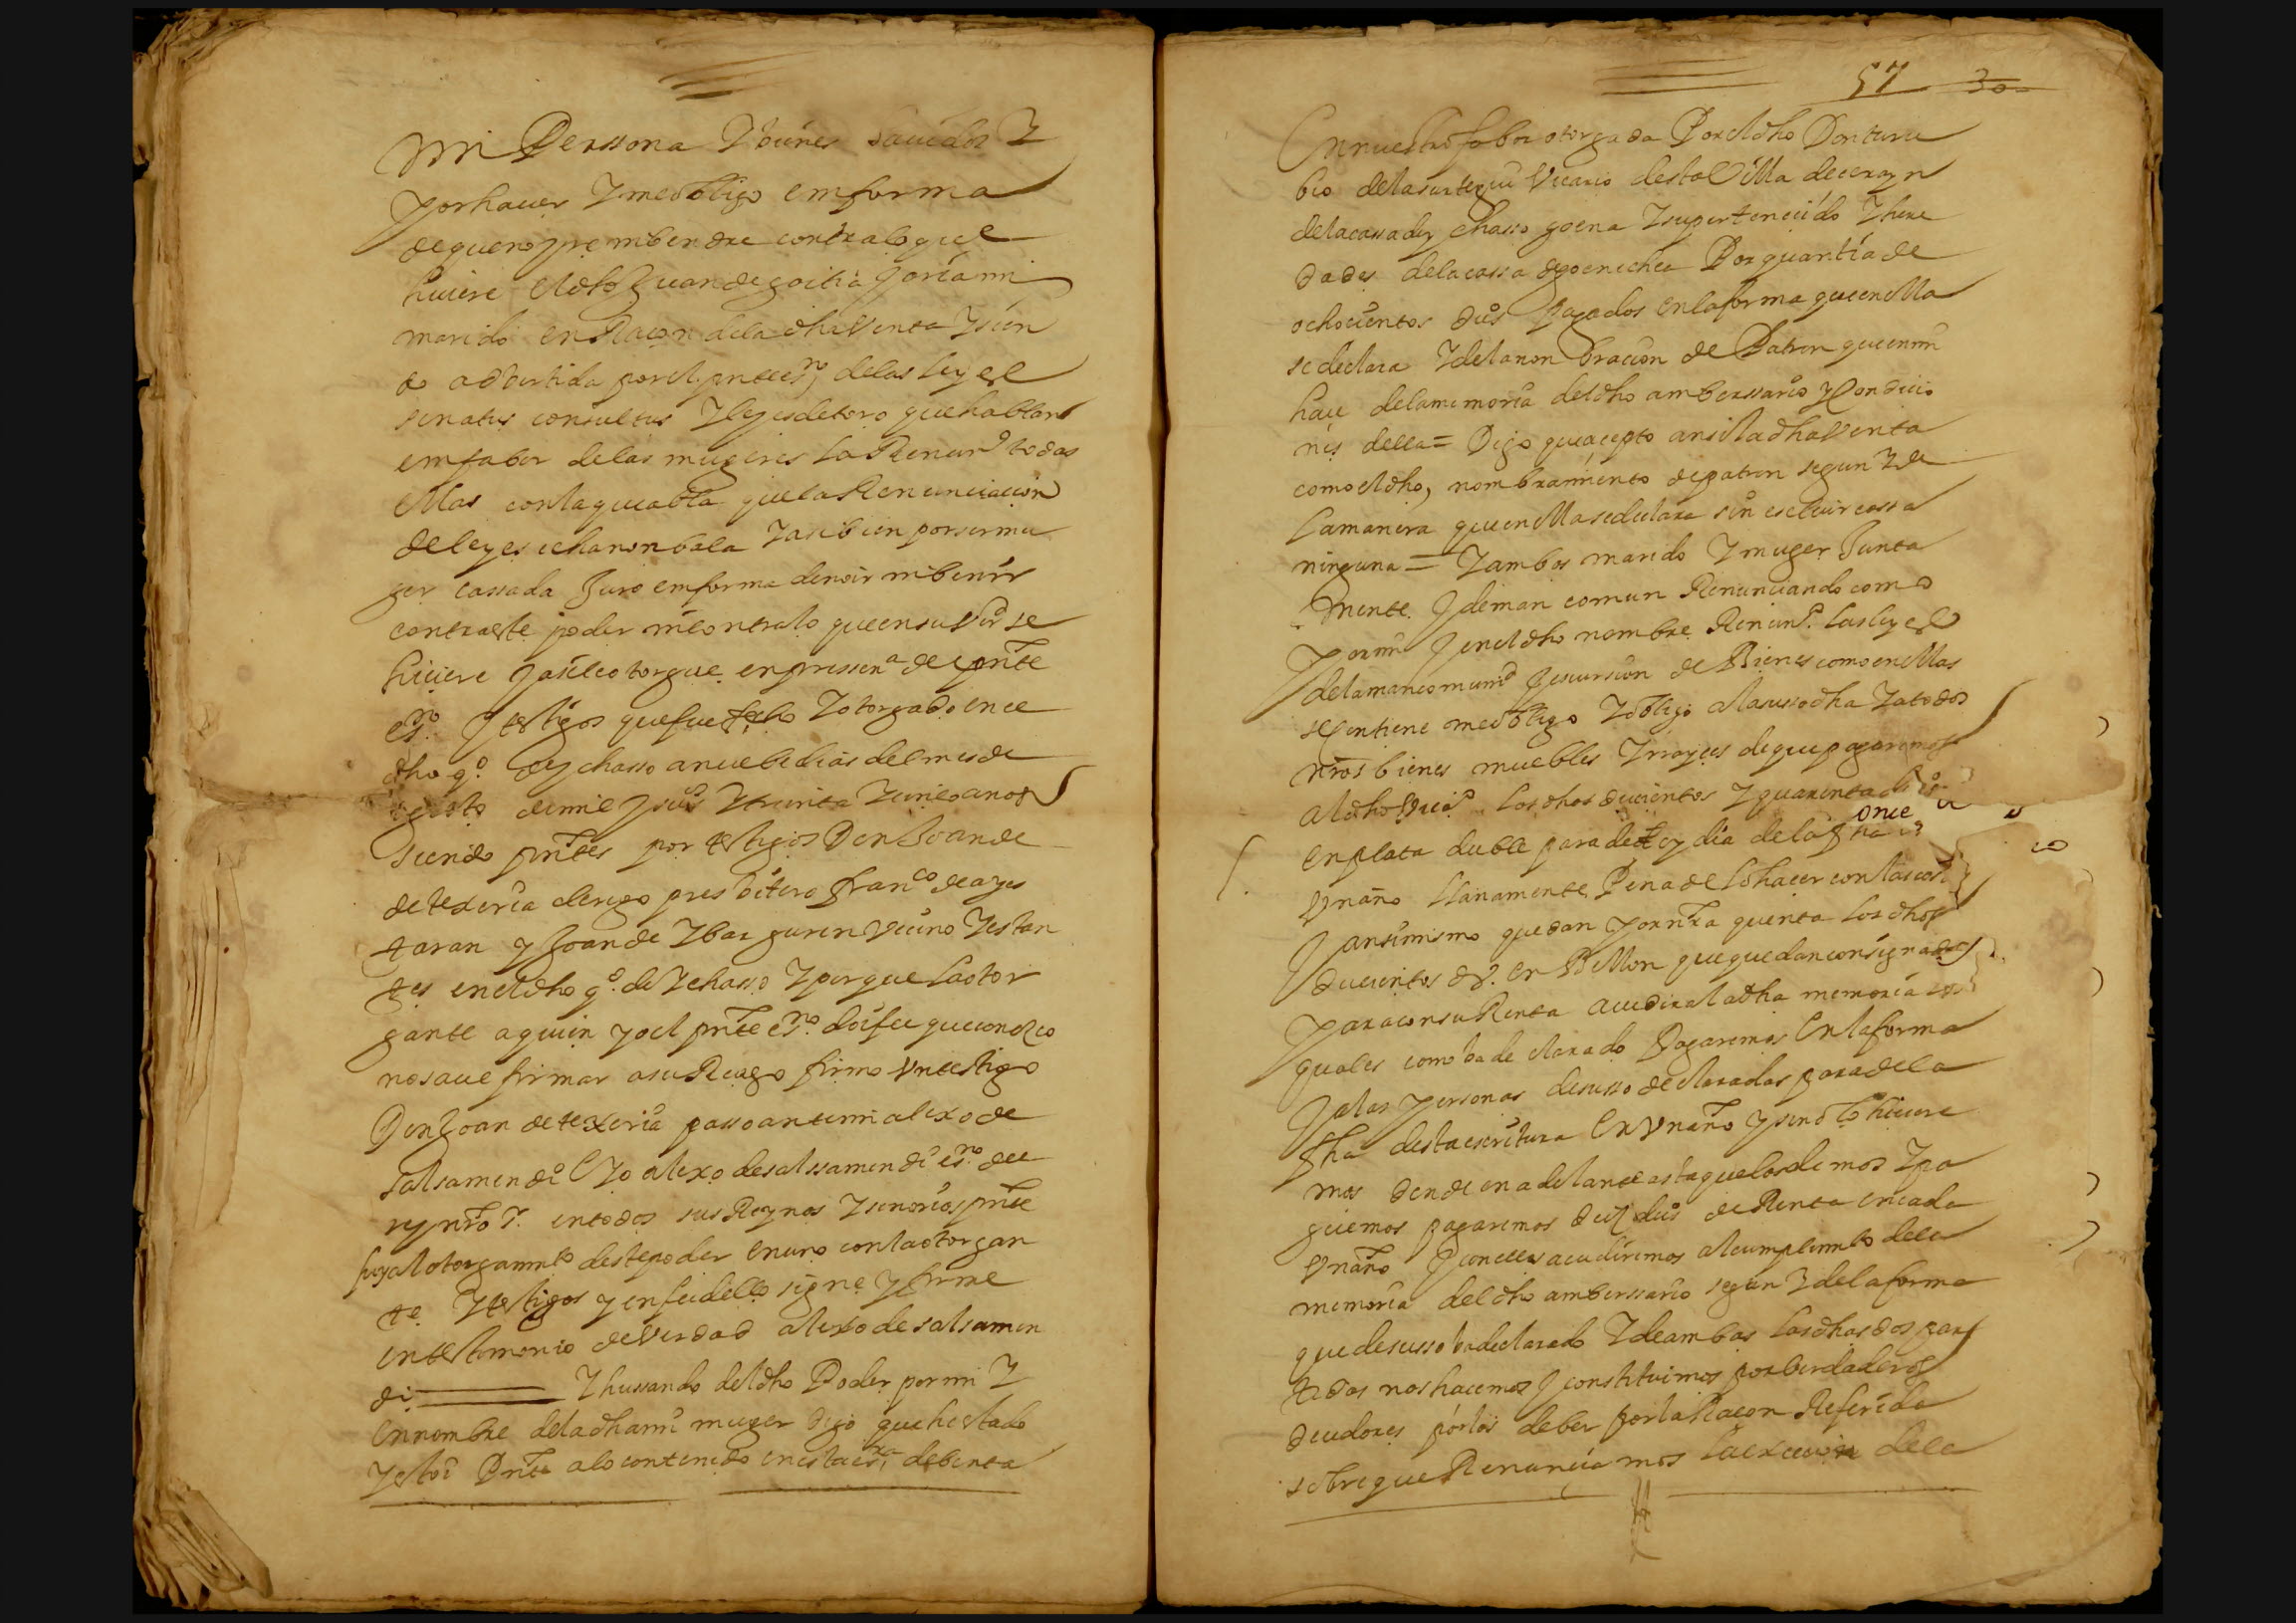 mi Perssona Y bienes hauidos Y
por hauer Y me obligo em forma
de que no yre ni bendre contra lo que
hiciere el dho Juan de goitia y oria mi
marido en Raçon de la dha Venta Y sien
do adbertida por el pnte esno, de las leyes
senatus consultus Y leyes de toro que hablan
em fabor de las mugeres las Renunº todas
ellas con la que abla que la Renunciacion
de leyes echa non bala Y asi bien por ser mu
ger cassada Juro em forma de no ir ni benir
contra este poder ni contra lo que en su Vir se
hiciere y asi lo otorgue en pressenª de el pnte
esno. y testigos que fue fecho Y otorgado en el
dho gº. de ychasso a nuebe dias del mes de
de mil y seis Y treinta Y cinco anos
siendo pntes por testigos Don Joan de
de texeria clerigo presbitero franco de ayes
taran y Joan de Ybarguren Vecino Y estan
tes en el dho gº. de Ychasso Y porque la otor
gante a quien yo el pnte esno. doi fee que conozco
no saue firmar a su Ruego firmo Vn testigo
Don Joan de texeria passo ante mi alexo de
salsamendi E Yo alexo de salssamendi esno. del
rey nro sr. en todos sus Reynos Y senorios pnte
fuy al otorgamto deste poder en uno con la otorgan
te Y testigos y en fee dello signe y firme
en testimonio de verdad alexo de salsamen
di Y hussando del dho Poder por mi Y
en nombre de la dha mi muger digo que he estado
Y estoi Pnte a lo contenido en esta esra, de benta
57 30
En nuestro fabor otorgada Por el dho Don turi
bio de la Vicario desta Villa de cerayn
de la cassa de ychasso goena Y su pertenecido Y here
dades de la cassa de goenechea Por quantia de
ochocientos dus pagados en la forma que en ella
se declara Y de la nonbracion de Patron que en mi
hace de la memoria del dho anibersario y Condicio
nes della = Digo que acepto ansi la dha Venta
como el dho, nombramiento de patron segun Y de
la manera que en ella se declara sin escluir cossa
ninguna = Y ambos marido Y muger Junta
mente y de man comun Renunciando como
por mi y en el dho nombre Renunº. las leyes
de la mancomunid y escursion de Bienes como en ellas
se contiene me obligo Y obligo a la susso dha Y a todos
nros bienes muebles Y rrayces de que pagaremos
al dho Vicº. los dhos ducientos Y quarenta
once
en plata duble para de oy dia de la fha
Vn año llanamente Pena de lo hacer con las cost
y ansimismo quedan por nra quenta los dhos
ducientos ds. en Bellon que quedan consignados
para con su Renta acudir a la dha memoria los
quales como ba declarado Pagaremos en la forma
y a las personas de susso declaradas para de la
fha desta escritura en Vn año y si no lo hiciere
mos dende en adelante asta que los demos Y pa
guemos pagaremos diez dus de Renta en cada
Vn año y con ellos acudiremos al cumplimto de la
memoria del dho anibersario segun Y de la forma
que de susso ba declarado Y de ambas las dhas dos par
tidas nos hacemos y constituimos por berdaderos
deudores por los deber por la Raçon Referida
sobre que Renunciamos la exceucion de la